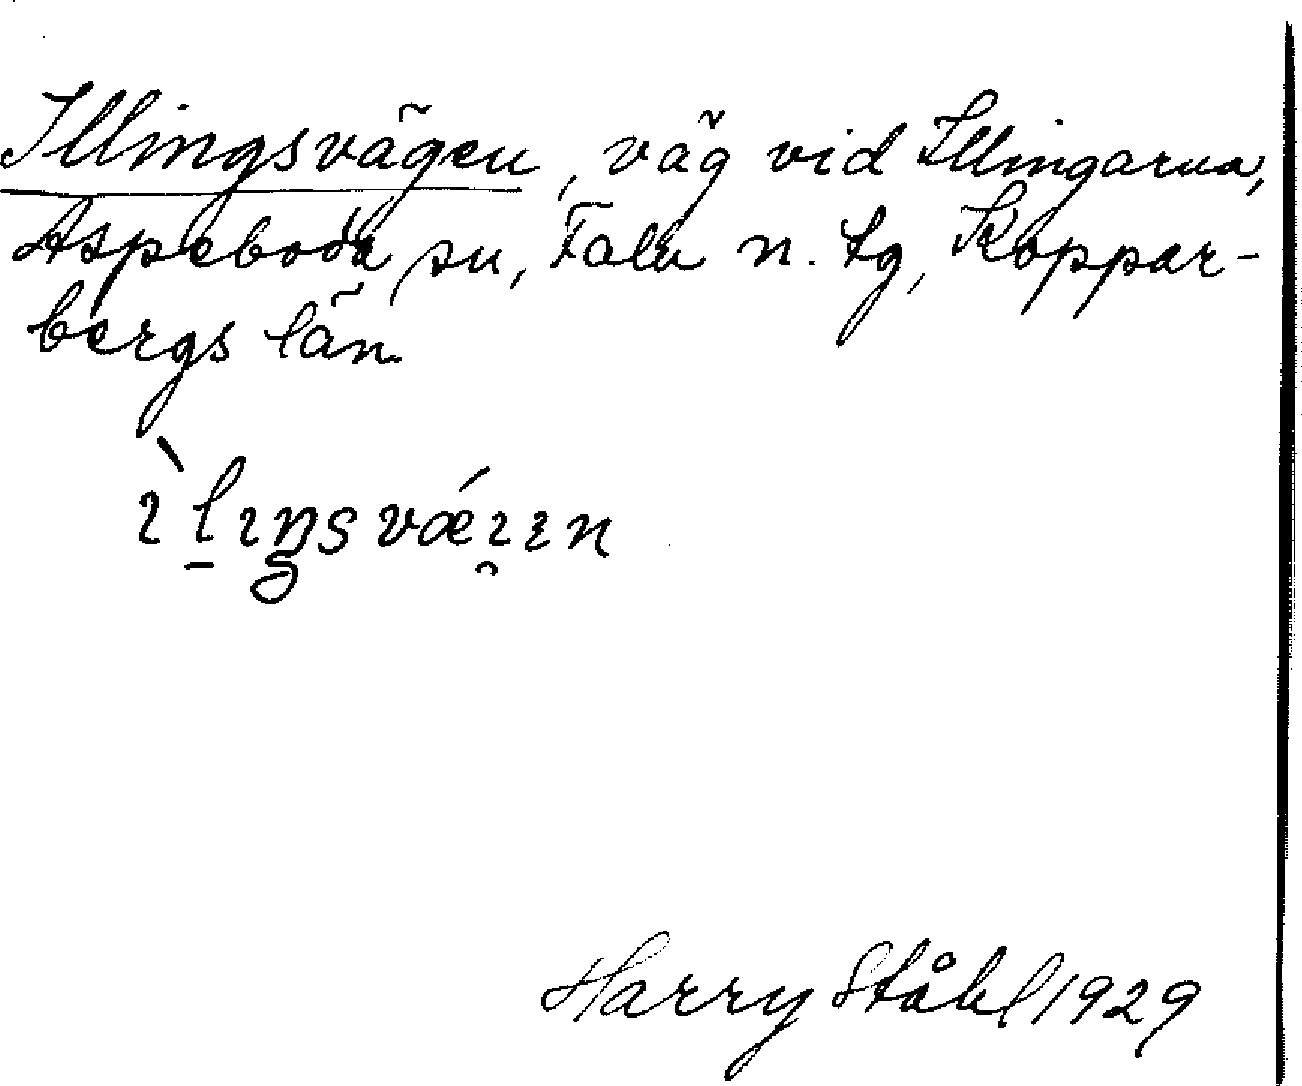 Illingsvägen, väg vid Illingarna,
Aspeboda sn, Falu n. tg, Koppar-
bergs län.
ı̀l̠ıŋsvǽı̯ın
Harry Ståhl 1929